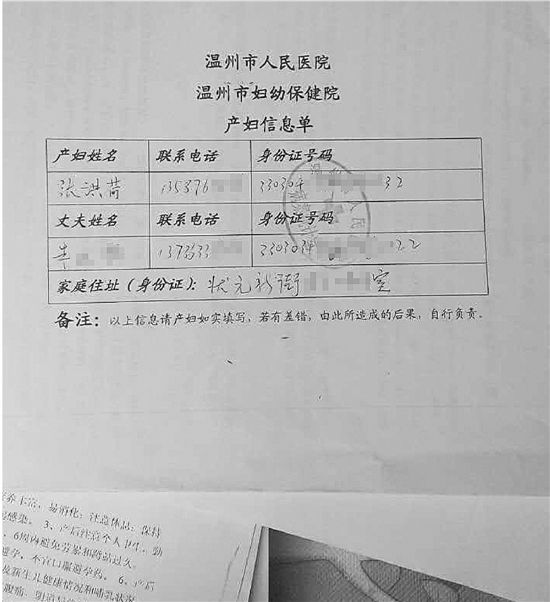 温州市人民医院
温州市妇幼保健院
产妇信息单
产妇姓名 联系电话 身份证号码
张洪苘 135876 330304 32
丈夫姓名 联系电话 身份证号码
137353 330304 22
家庭住址（身份证）： 状元新街 室
备注：以上信息请产妇如实填写，若有差错，由此所造成的后果，自行负责。
易消化；注意休息；保持
感染。 3、产后注意个人卫生，勤
6周内避免劳累和跨站过久
避孕，不宜口服避孕药。 6、产后
及新生儿健康情况和哺乳状况